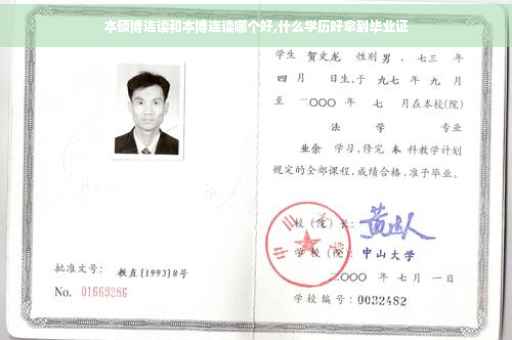 本硕博连读和本博连读哪个好,什么学历好拿到毕业证
学生 贺文龙 性别 男 、七三 年
四 月 日生,于 九七 年 九 月
至 二〇〇〇 年 七 月在本校(院)
法 学 专业
业余 学习,修完 本 科教学计划
规定的全部课程,成绩合格,准予毕业。
校(院)长:
学校(院): 中山大学
二〇〇〇 年 七 月 一 日
学校编号: 0032482
批准文号: 教直[1993]8号
No. 01669286